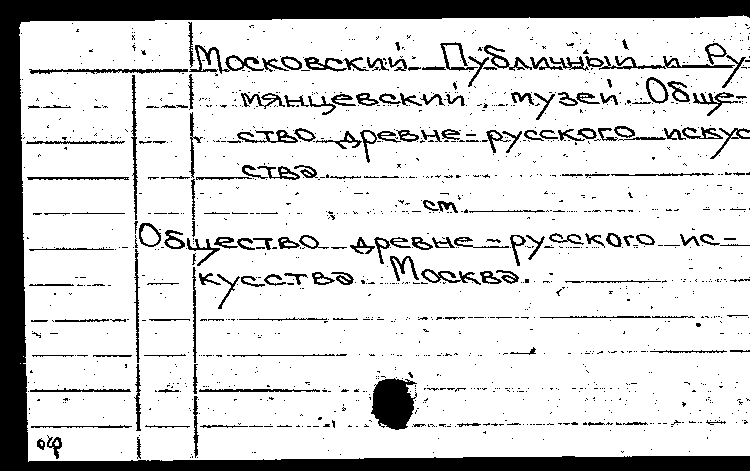 Московский Публичный и Ру-
мянцевский музей. Обще-
ство древне-русского искус
ства.
см.
Общество древне-русского ис-
кусства. Москва.
оф